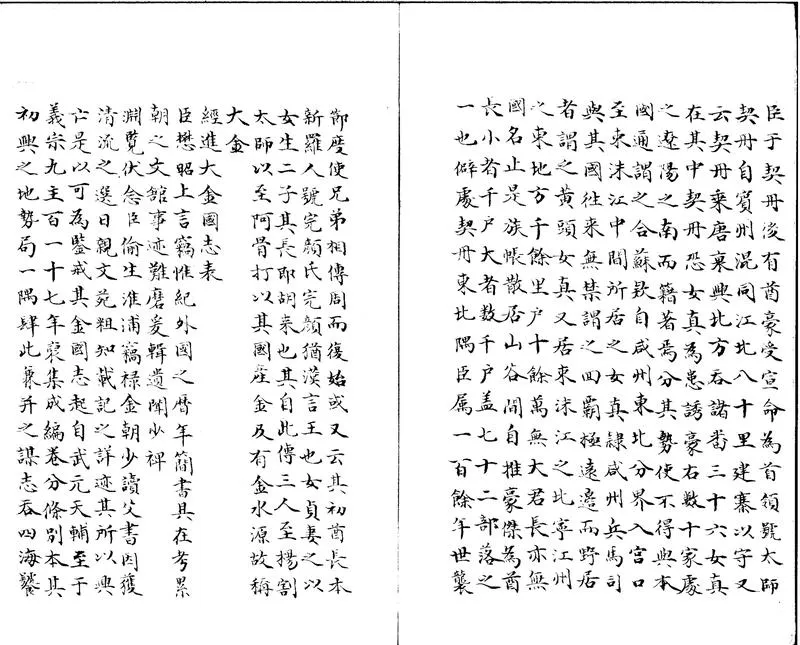 臣于契丹後有酋豪受宣命為首領號太師
契丹自賓州混同江北八十里建寨以守又
云契丹乘唐衰興北方吞諸番三十六女真
在其中契丹恐女真為患誘豪右數十家處
之遼陽之南而籍者焉分其勢使不得與本
國通謂之合蘇欵自咸州東北分界入宫口
至束沬江中間所居之女真隸咸州兵馬司
與其國往來無禁謂之四覇極遠邉而野居
者謂之黄頭女真又居束沬江之北寧江州
之東地方千餘里户十餘萬無大君長亦無
國名止是族帳散居山谷間自推豪傑為酋
長小者千户大者数千户盖七十二部落之
一也僻處契丹東北隅臣属一百餘年世襲
節度使兄弟相傳周而復始或又云其初酋長本
新羅人號完顔氏完顔猶漢言王也女貞妻之以
女生二子其長即胡来也其自此傳三人至揚割
太師以至阿骨打以其國産金及有金水源故稱
大金
經進大金國志表
臣懋昭上言竊惟紀外國之暦年簡書具在考累
朝之文館事迹難磨爰輯遺聞少裨
淵覧伏念臣偷生淮浦竊禄金朝少讀父書因獲
清流之選日親文苑粗知載記之詳迹其所以興
亡是以可為鑒戒其金國志起自武元天輔至于
義宗九主百一十七年裒集成編卷分條别本其
初興之地勢局一隅肆此兼并之謀志吞四海饕